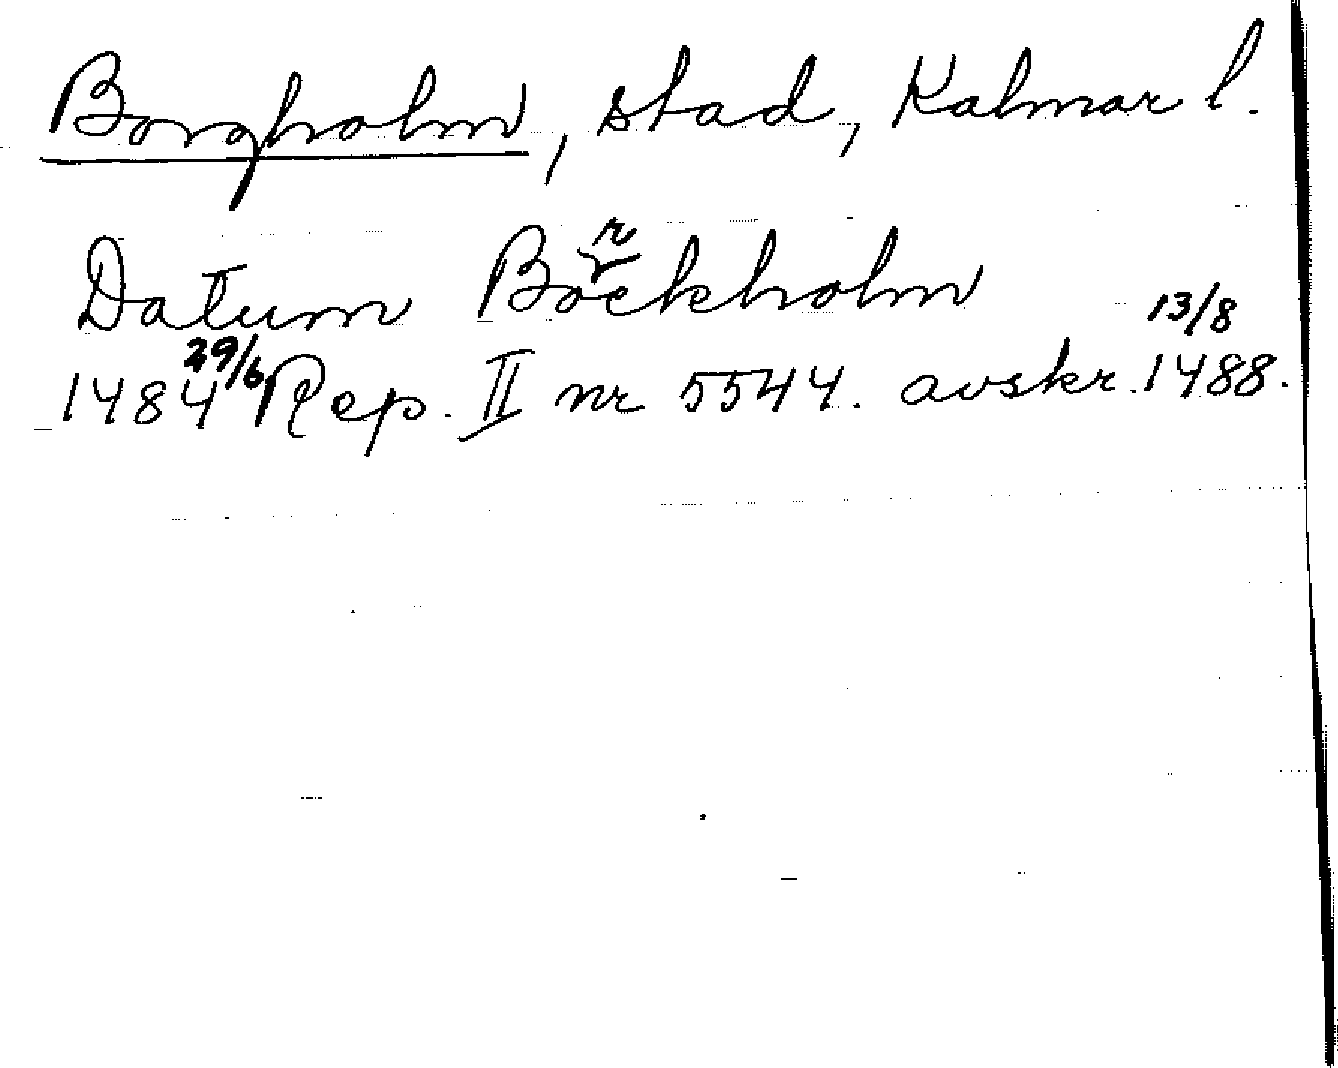 Borgholm, stad, Kalmar l.
Datum Borckholm
1484 29/6 Rep. II nr 5544. avskr. 13/8 1488.